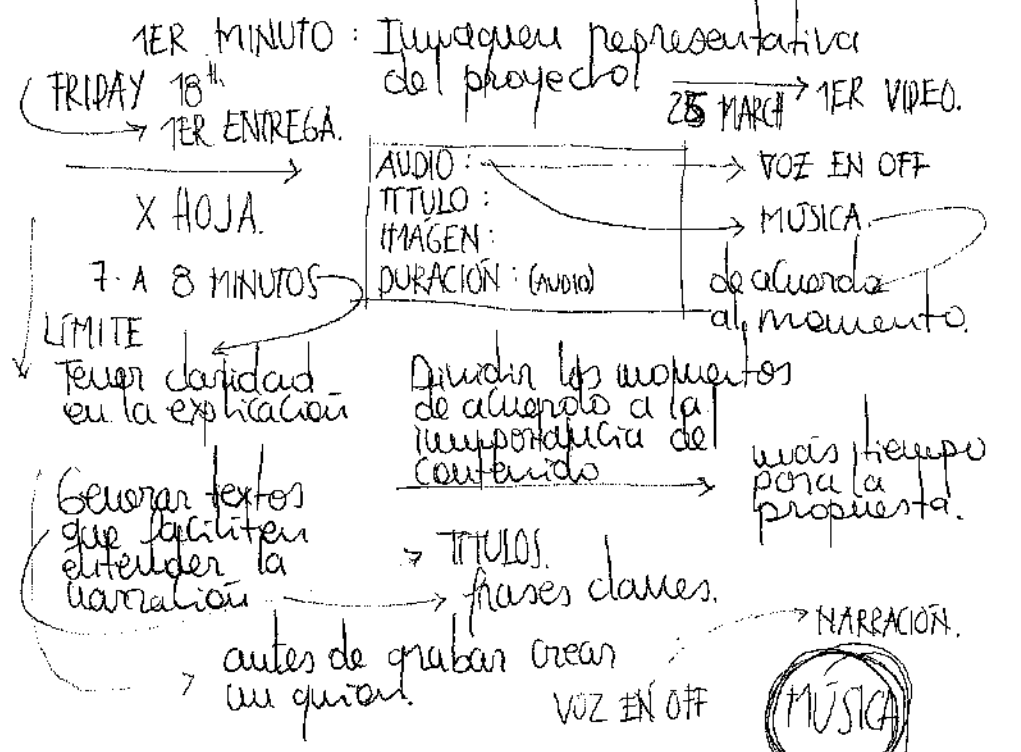 1ER MINUTO : Imagen representativa
del proyecto
FRIDAY 18th.
1ER ENTREGA.
25 MARCH
1ER VIDEO.
X HOJA.
AUDIO :
TÍTULO :
IMÁGEN :
DURACIÓN : (AUDIO)
VOZ EN OFF
MÚSICA.
de acuerdo
al momento.
7 A 8 MINUTOS
LÍMITE
Tener claridad
en la explicación
Dividir los momentos
de acuerdo a la
importancia del
contenido
más tiempo
para la
propuesta.
Generar textos
que faciliten
entender la
narración
TÍTULOS.
frases claves.
antes de grabar crear
un guión.
VOZ EN OFF
NARRACIÓN.
MÚSICA